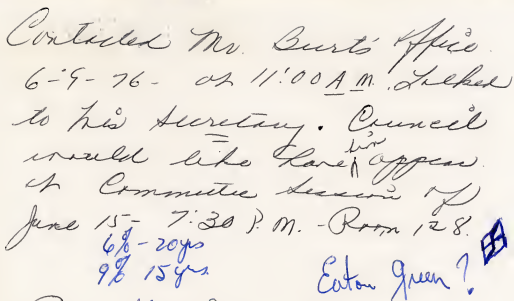 Contacted Mr. Burt's office
6-9-76- at 11:00 A.M. Talked
to his secretary. Council
would like have him appear
at Committee Session of
June 15- 7:30 P.M. - Room 128.
6% - 20 yrs
9% 15 yrs
Eaton Green?